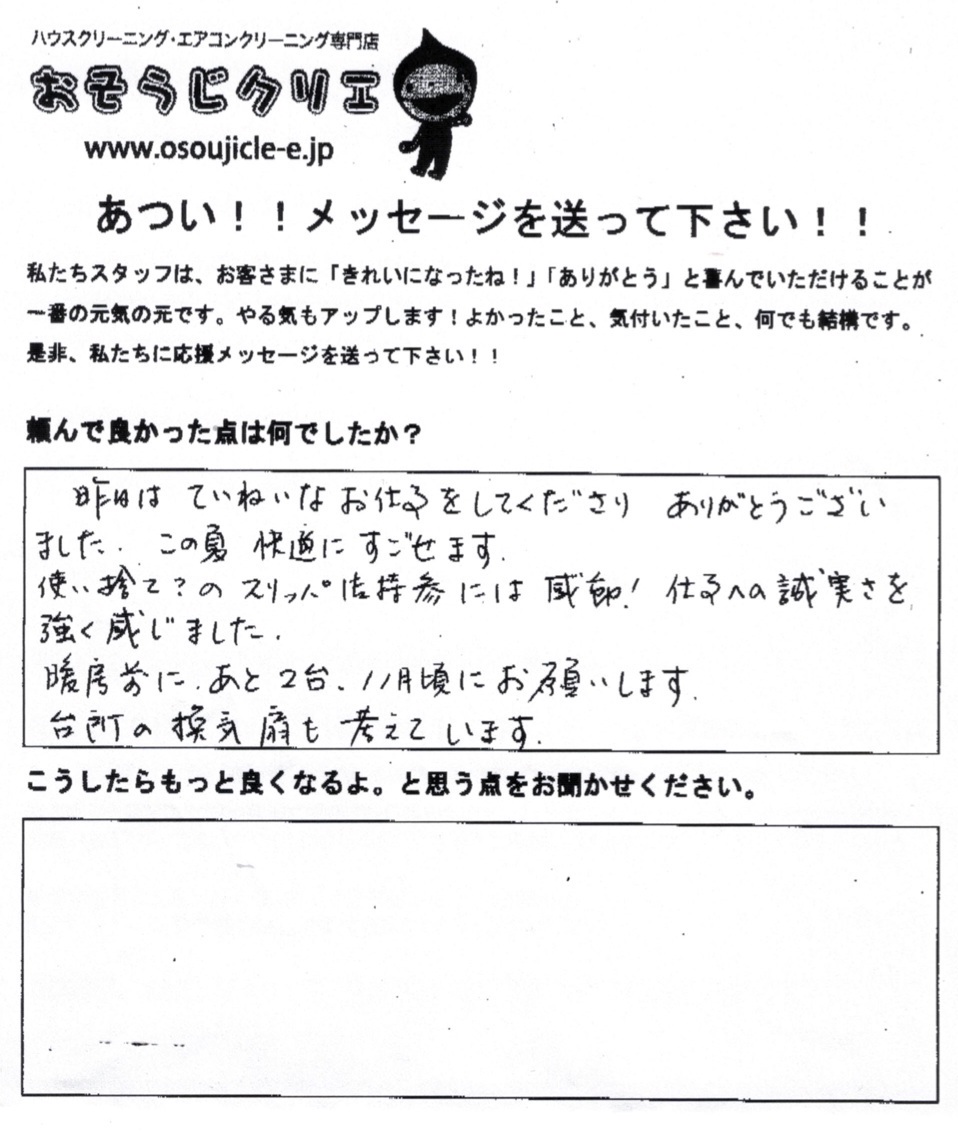 ハウスクリーニング・エアコンクリーニング専門店
おそうじクリエ
www.osoujicle-e.jp
あつい！！メッセージを送って下さい！！
私たちスタッフは、お客さまに「きれいになったね！」「ありがとう」と喜んでいただけることが
一番の元気の元です。やる気もアップします！よかったこと、気付いたこと、何でも結構です。
是非、私たちに応援メッセージを送って下さい！！
頼んで良かった点は何でしたか？
昨日は ていねいな お仕事をしてくださり ありがとうござい
ました. この夏 快適に すごせます.
使い捨て？の スリッパ御持参には 感動！ 仕事への誠実さを
強く感じました.
暖房前に.あと2台、11月頃にお願いします.
台所の換気扇も 考えています.
こうしたらもっと良くなるよ。と思う点をお聞かせください。